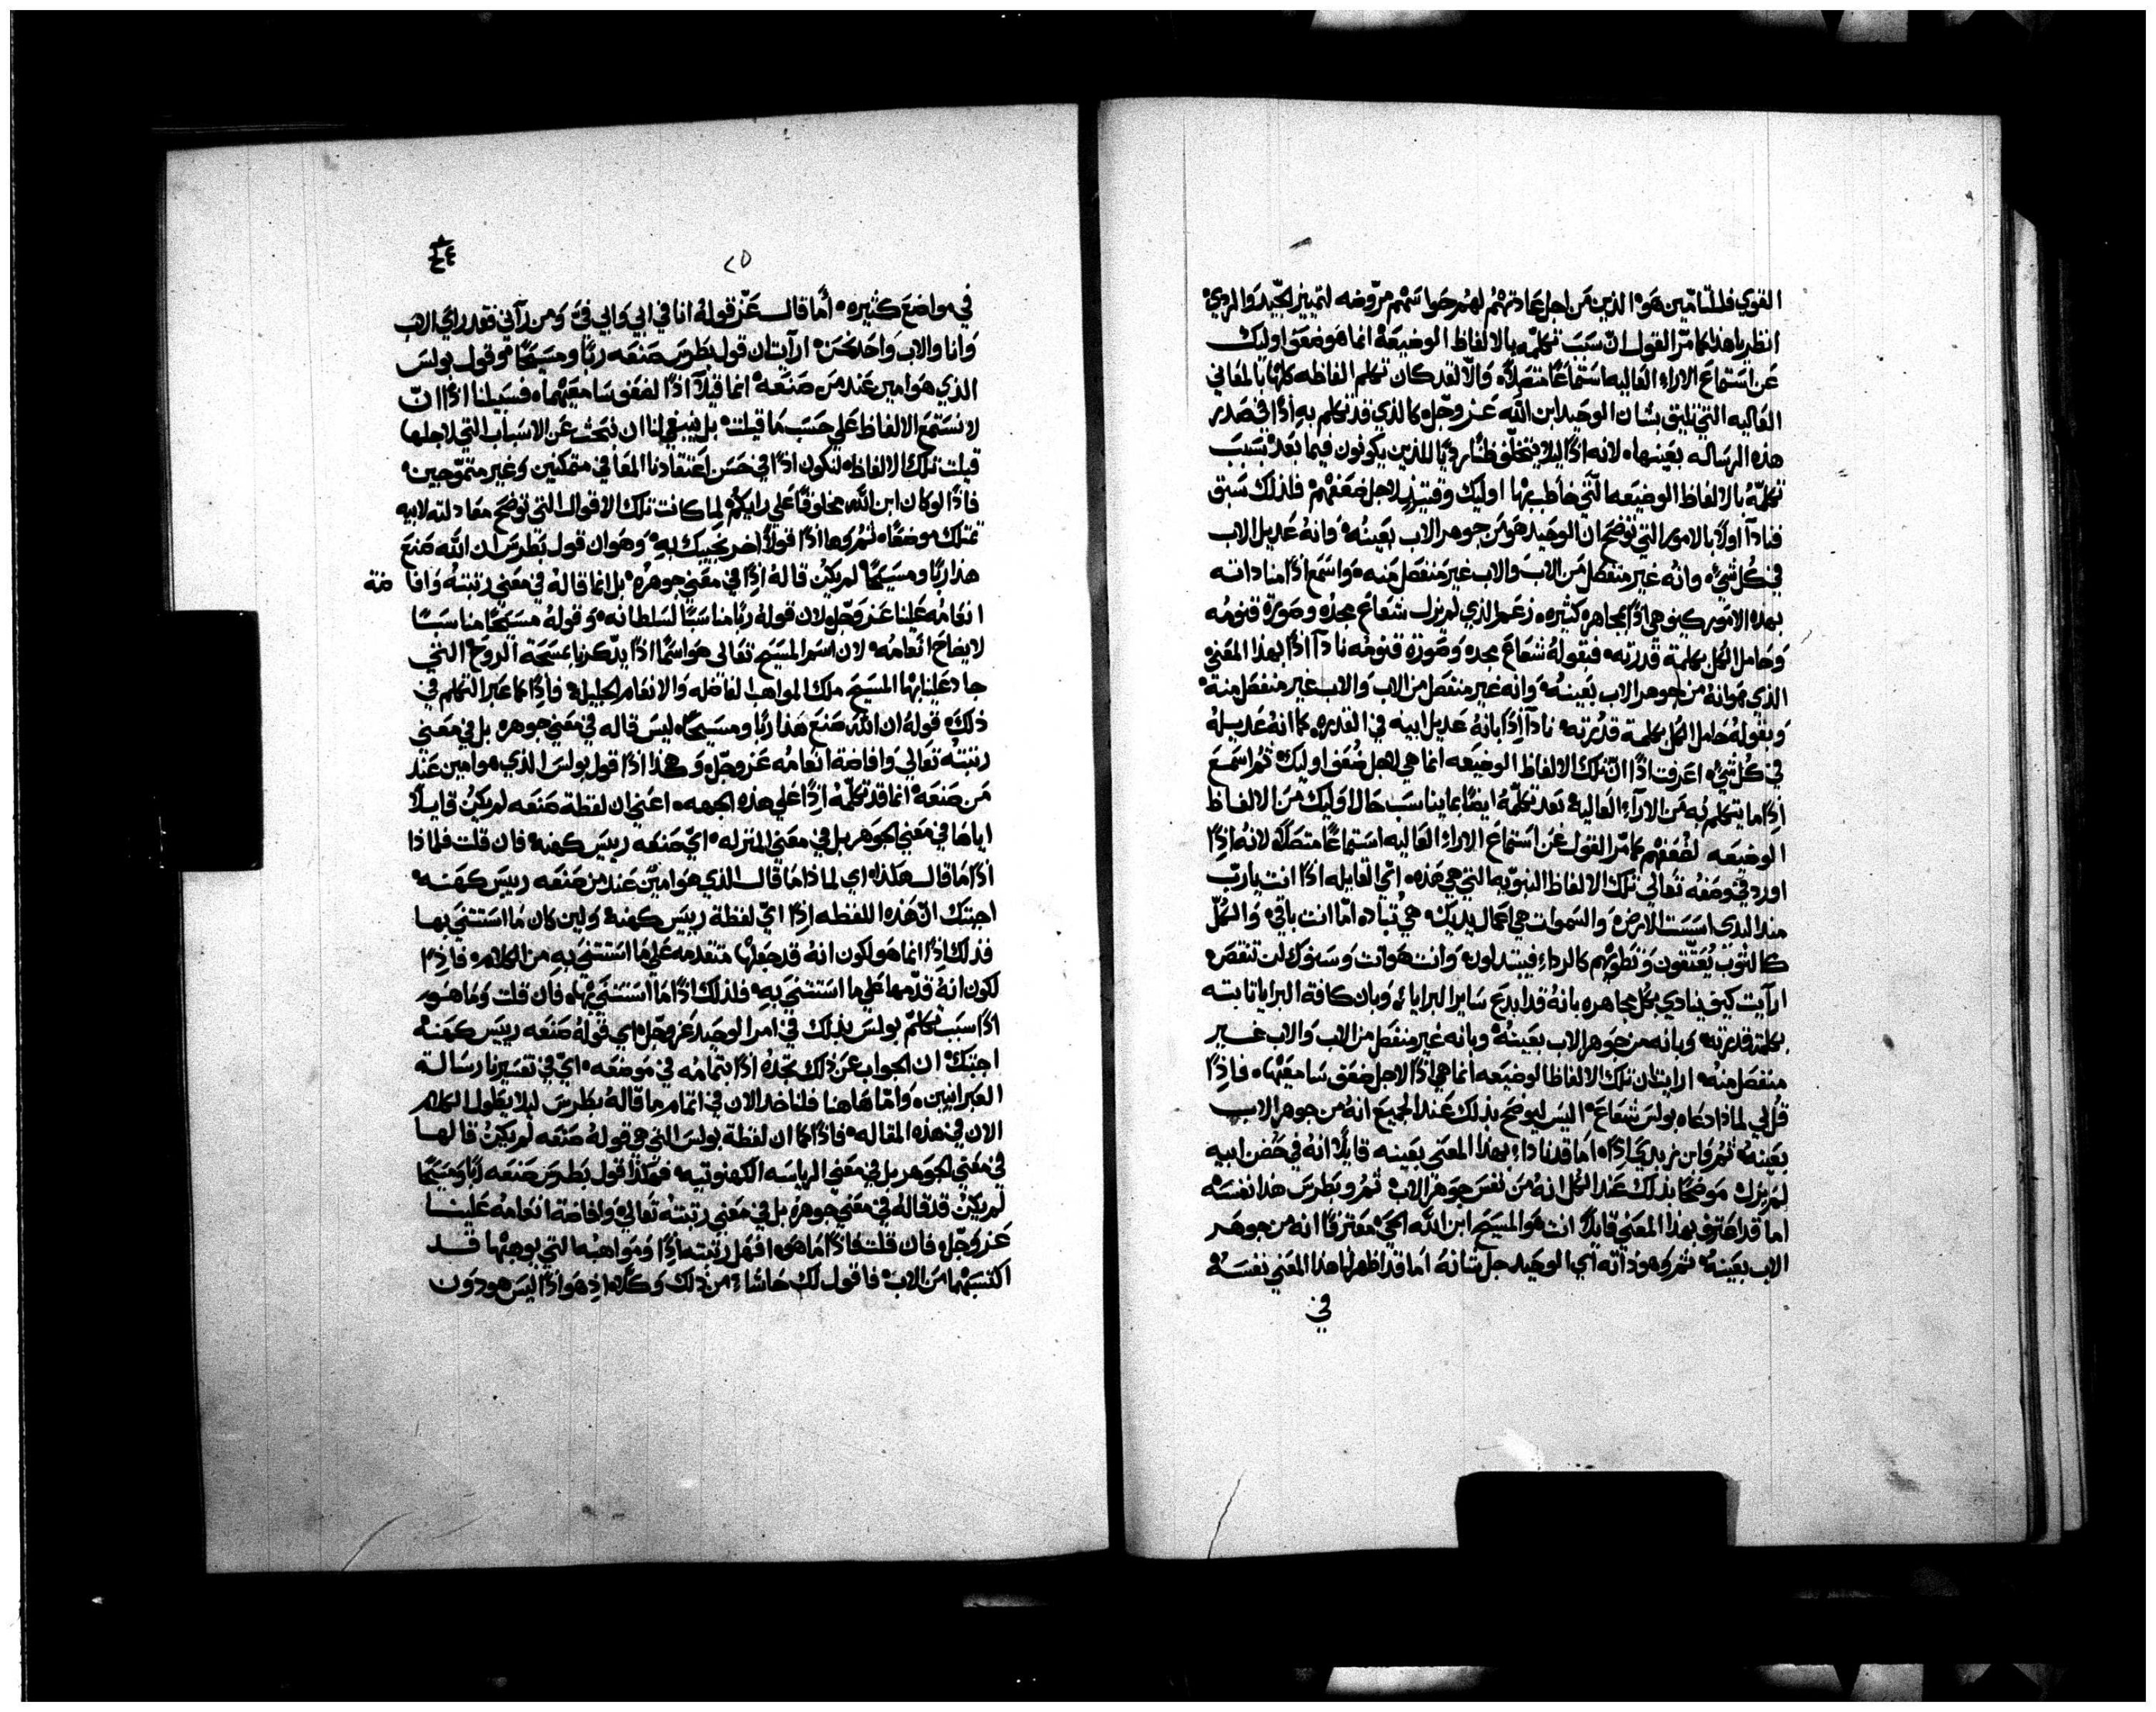 القوي فللتامّين هو الذين من اجل عادتهم لهم حواسهم مروضه لتمييز الجيد والردي
انظر يا هذا كما مرّ القول انّ سبب تكلّمه بالالفاظ الوضيعة انما هو ضعف اوليك
عن استماع الاراء العاليه استماعًا متصلاً والّا لقد كان تكلم الفاظه كلها بالمعاني
العاليه التي تليق بشان الوحيد ابن الله عز وجل كالذي قد تكلم به اذًا في صدر
هذه الرساله بعينها لانه اذًا ليلا يتخلّف ظنًا رديًا للذين يكونون فيما بعد بسبب
تكلمه بالالفاظ الوضيعه التي خاطب بها اوليك وقتيذٍ لاجل ضعفهم فلذلك سبق
فنادا اولاً بالامور التي توضح ان الوحيد هو من جوهر الاب بعينه وانه عديل الاب
في كل شيء وانه غير منفصل من الاب والاب غير منفصل منه واسمع اذًا مناداته
بهذه الامور كيف هي اذًا بمجاهره كثيره زعم الذي لم يزل شعاع مجده وصورة قنومه
وحامل الكل بكلمة قدرته فبقوله شعاع مجده وصورة قنومه نادا اذًا بهذا المعني
الذي هو انه من جوهر الاب بعينه وانه غير منفصل من الاب والاب غير منفصل منه
وبقوله حامل الكل بكلمة قدرته نادا اذًا بانه عديل ابيه في القدره كما انه عديله
في كل شيء اعرفت اذًا انّ تلك الالفاظ الوضيعه انما هي لاجل ضعف اوليك ثم اسمع
اذًا ما يتكلم به من الاراء العاليه بعد تكلّمه ايضًا بما يناسب حال اوليك من الالفاظ
الوضيعه لضعفهم كما مرّ القول عن استماع الاراء العاليه استماعًا متصلاً لانه اذًا
اورد في وصفه تعالي تلك الالفاظ النبويه التي هي هذه اي القايله اذًا انت يا ربّ
منذ البدي اسست الارض والسموات هي اعمال يديك هي تباد امّا انت باقي والكلّ
كالثوب يعتّقون وتطويهم كالرداء فيتبدلون وانت هو انت وسنوك لن تنقص
ارايت كيف ينادي بكل مجاهره بانه قد ابدع ساير البرايا وبان كافة البرايا ثابته
بكلمة قدرته وبانه من جوهر الاب بعينه وبانه غير منفصل من الاب والاب غير
منفصل منه ارايت ان تلك الالفاظ الوضيعه انما هي اذًا لاجل ضعف سامعيها فاذًا
قل لي لماذا دعاه بولس شعاع اليس ليوضح بذلك عند الجميع انه من جوهر الاب
بعينه ثم وابن زبدي اذًا اما قد نادا بهذا المعني بعينه قايلاً انه في حضن ابيه
لم يزل موضحًا بذلك عند الكل انه من نفس جوهر الاب ثم وبطرس هذا نفسه
اما قد اعترف بهذا المعني قايلاً انت هو المسيح ابن الله الحي معترفًا انه من جوهر
الاب بعينه ثم وهو ذاته اي الوحيد جل شانه اما قد اظهر لنا هذا المعني نفسه
في
٢٥
في مواضع كثيره أما قال عزّ قوله انا في ابي وابي فيّ ومن رآني فقد راي الاب
وانا والاب واحد نحن ارايت ان قول بطرس صنعه ربًا ومسيحًا وقول بولس
الذي هو امين عند من صنعه انما قيلا اذًا لضعف سامعيهما فسبيلنا اذًا انّ
لا نستمع الالفاظ علي حسب ما قيلت بل ينبغي لنا ان نبحث عن الاسباب التي لاجلها
قيلت تلك الالفاظ لنكون اذًا في حسن اعتقادنا المعاني متمكنين وغير متموّجين
فاذًا لو كان ابن الله مخلوقًا علي رايكم لما كانت تلك الاقوال التي توضح معادلته لابيه
تمتلك موضعًا ثم وها اذًا قولاً اخر نجيبك به وهو ان قول بطرس ان الله صنع
هذا ربًا ومسيحًا لم يكن قاله اذًا في معني جوهره بل انما قاله في معني رتبته وافاضة
انعامه علينا عز وجل لان قوله ربًا مناسبًا لسلطانه وقوله مسيحًا مناسبًا
لايضاح انعامه لان اسم المسيح تعالي هو اسمًا اذًا يذكرنا بمسحة الروح التي
جاد علينا بها المسيح ملك المواهب الفاضله والانعام الجليله فاذًا كما عبر التكلم في
ذلك قوله ان الله صنع هذا ربًا ومسيحًا ليس قاله في معني جوهره بل في معني
رتبته تعالي وافاضة انعامه عز وجل وهكذا اذًا قول بولس الذي هو امين عند
من صنعه انما قد تكلّمه اذًا علي هذه الجهه اعني ان لفظة صنعه لم يكن قايلاً
اياها في معني الجوهر بل في معني المنزله اي صنعه رييس كهنه فان قلت فلماذا
اذًا ما قال هكذا اي لماذا ما قال الذي هو امين عند من صنعه رييس كهنه
اجبتك انّ هذه اللفظه اذًا ايّ لفظة رييس كهنه ولين كان ما استثني بها
فذلك اذًا انما هو لكون انه قد جعلها متقدمه علي ما استثني به من الكلام فاذًا
لكون انه قدّمها علي ما استثني به فلذلك اذًا ما استثني بها فان قلت وما هو
اذًا سبب تكلّم بولس بذلك في امر الوحيد عز وجل اي قوله صنعه رييس كهنه
اجبتك ان الجواب عن ذلك تجده اذًا بتمامه في موضعه ايّ في تفسيرنا رسالة
العبرانيين وامّا هاهنا فلناخذ الان في اتمام ما قاله بطرس ليلا يطول الكلام
الان في هذه المقاله فاذًا كما ان لفظة بولس التي هي قوله صنعه لم يكن قالها
في معني الجوهر بل في معني الرياسه الكهنوتيه فهكذا قول بطرس صنعه ربًا ومسيحًا
لم يكن قد قاله في معني جوهره بل في معني رتبته تعالي وافاضة انعامه علينا
عز وجل فان قلت فاذًا ما هو افهل رتبته اذًا ومواهبه التي يوهبها قد
اكتسبهما من الاب فاقول لك حاشا من ذلك وكلا اذ هو اذًا ليس هو دون